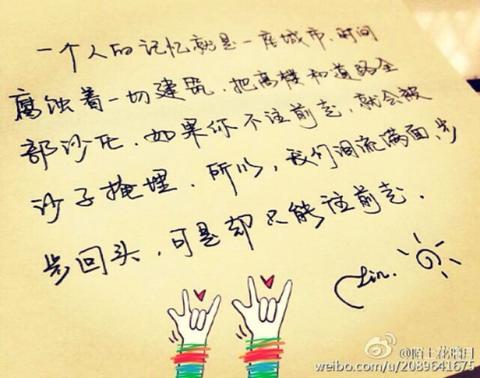 一个人的记忆就是一座城市,时间
腐蚀着一切建筑,把高楼和道路全
部沙化.如果你不往前走,就会被
沙子掩埋.所以,我们泪流满面,步
步回头,可是却只能往前走.
Lin.
weibo.com/u/2089641675